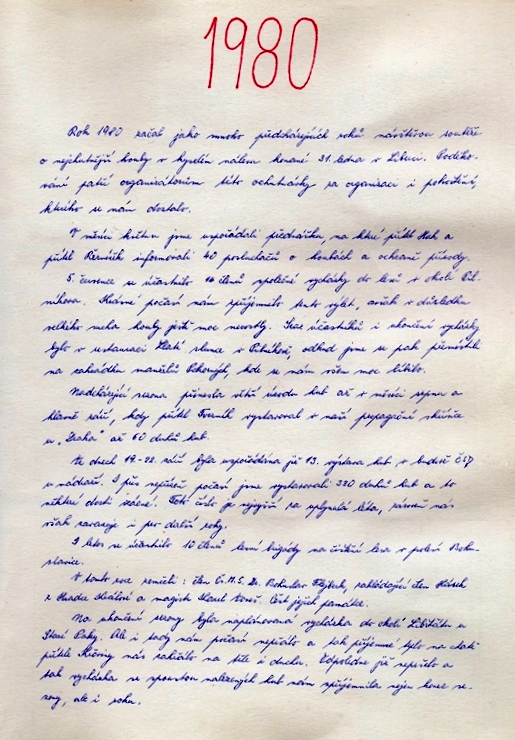 1980
Rok 1980 začal jako mnoho předcházejících roků návštěvou soutěže
o nejchutnější houby v kyselém nálevu konané 31. ledna v Libuci. Poděko-
vání patří organisátorům této ochutnávky za organisaci i pohoštění,
kterého se nám dostalo.
V měsíci květnu jsme uspořádali přednášku, na které přítel Hak a
přítel informovali 40 posluchačů o houbách a ochraně přírody.
5. července se účastnilo členů společné vycházky do lesů v okolí Pil-
níkova. Krásné počasí nám zpříjemnilo tento výlet, avšak v důsledku
velkého sucha houby ještě moc nerostly. Sraz účastníků i skončení vycházky
bylo v restauraci Zlaté slunce v Pilníkově, odkud jsme se pak přemístili
na zahrádku manželů Pokorných, kde se nám všem moc líbilo.
Nadcházející sezona přinesla větší úrodu hub až v měsíci srpnu a
hlavně září, kdy přítel vystavoval v naší propagační skříňce
u "Draha" až 60 druhů hub.
Ve dnech 19.-22. září byla uspořádána již 13. výstava hub v budově ČSD
u nádraží. I přes nepřízeň počasí jsme vystavovali 320 druhů hub a to
některé dosti vzácné. Toto číslo je nejvyšší za uplynulá léta, zároveň nás
však zavazuje i pro další roky.
I letos se účastnilo 10 členů lesní brigády na čištění lesa v polesí Bohu-
slavice.
V tomto roce zemřeli: člen Č.M.S. Dr. Bohuslav zakládající člen
z Hradce Králové a magistr Karel Čest jejich památce.
Na ukončení sezony byla naplánována vycházka do okolí Libštátu u
Staré Paky. Ale i tady nám počasí nepřálo a tak příjemné bylo na chatě
přítele nás zahřálo na těle i duchu. Odpoledne již nepršelo a
tak vycházka se spoustou nalezených hub nám zpříjemnila nejen konec se-
zony, ale i roku.